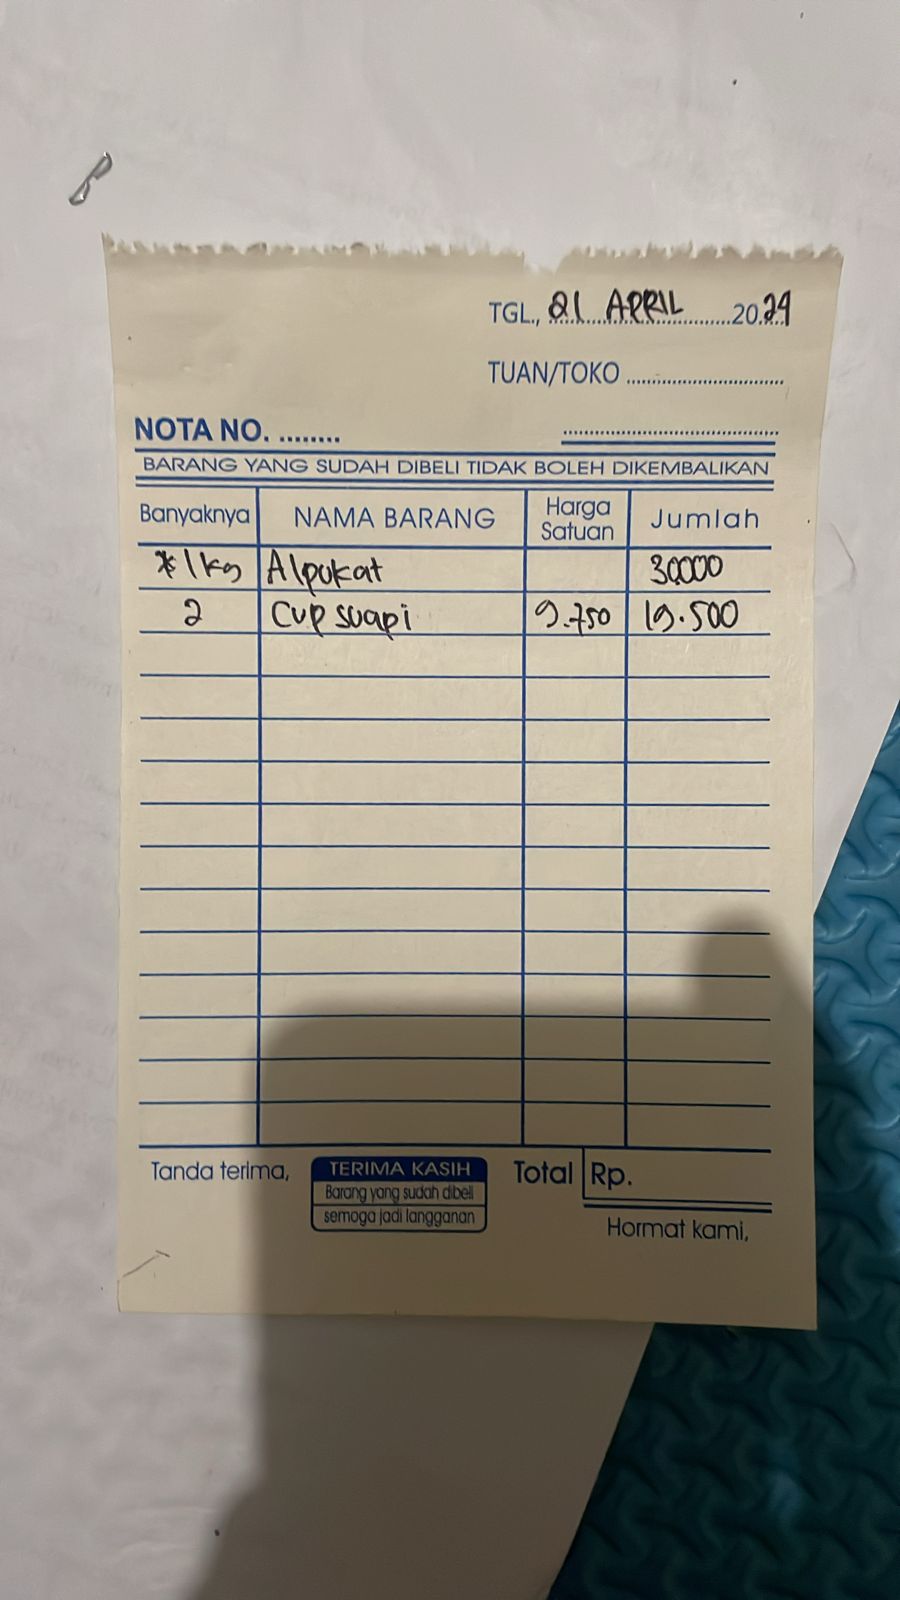 TGL., 21 APRIL 2024
TUAN/TOKO
NOTA NO.
BARANG YANG SUDAH DIBELI TIDAK BOLEH DIKEMBALIKAN
Banyaknya NAMA BARANG Harga Satuan Jumlah
1 kg Alpukat 30.000
2 Cup suapi 9.750 19.500
Tanda terima, TERIMA KASIH Total Rp.
Barang yang sudah dibeli
semoga jadi langganan
Hormat kami,